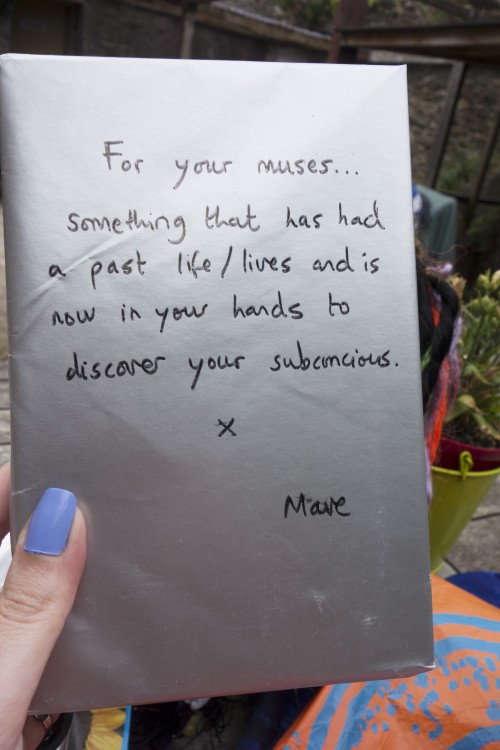 For your muses...
something that has had
a past life/lives and is
now in your hands to
discover your subconcious.
x
Mave